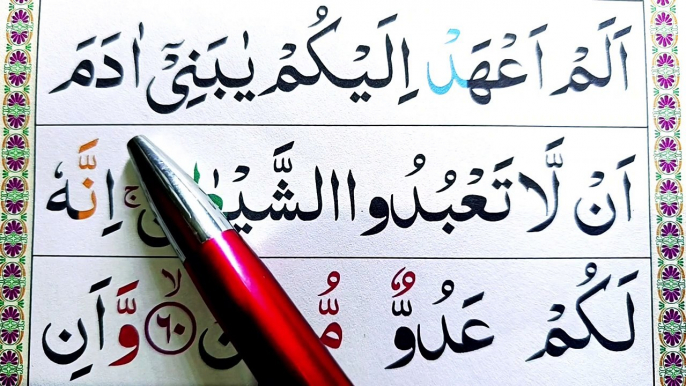 اَلَمْ اَعْهَدْ اِلَيْكُمْ يٰبَنِيْۤ اٰدَمَ
اَنْ لَّا تَعْبُدُوا الشَّيْطٰنَ ۚ اِنَّهٗ
لَكُمْ عَدُوٌّ ۙ﴿۶۰﴾ وَّاَنِ